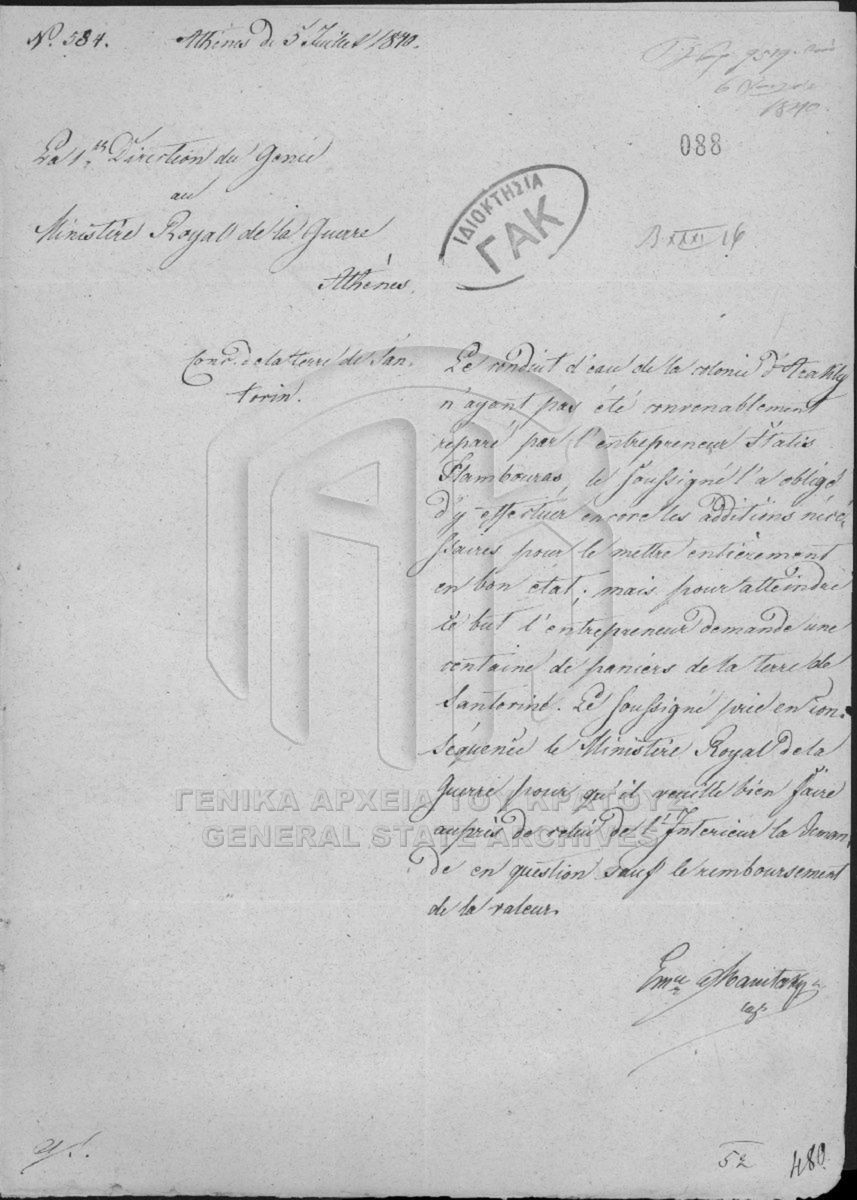 Nº 584. Athènes de 5 Juillet 1840.
6
1840.
088
La 1.re Direction du Génie
au
Ministère Royal de la Guerre
Athènes.
ΙΔΙΟΚΤΗΣΙΑ
ΓΑΚ
B XXXI 16
Conc. de la terre de San-
torin.
Le conduit d'eau de la colonie d'
n'ayant pas été convenablement
reparé par l'entrepreneur Statis
Stambouras, le soussigné l'a obligé
d'y effectuer encore les additions néce-
ssaires pour le mettre entièrement
en bon état; mais pour atteindre
ce but l'entrepreneur demande une
centaine de paniers de la terre de
Santorine. Le soussigné prie en con-
séquence le Ministère Royal de la
Guerre pour qu'il veuille bien faire
auprès de celui de l'Interieur la deman-
de en question sauf le remboursement
de la valeur.
ΓΕΝΙΚΑ ΑΡΧΕΙΑ ΤΟΥ ΚΡΑΤΟΥΣ
GENERAL STATE ARCHIVES
Em.le Manitaky
cap
52
480